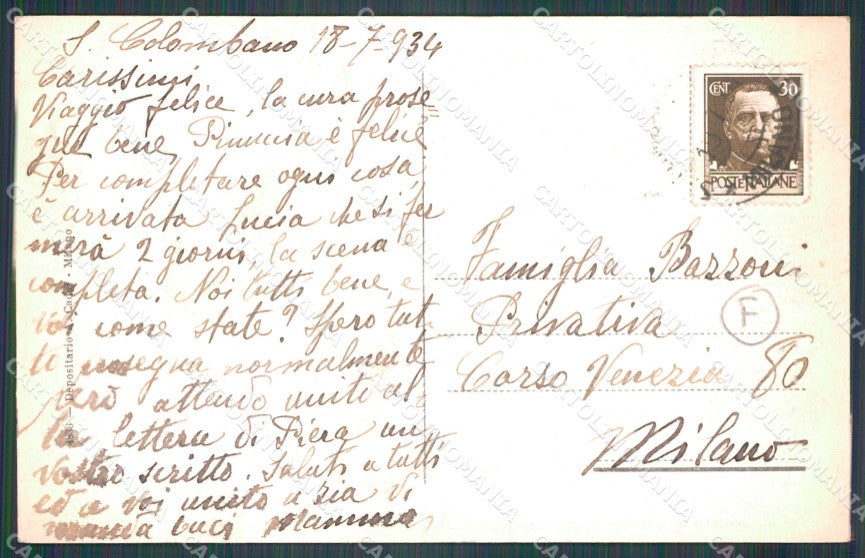 S. Colombano 18-7-934
Carissimi
Viaggio felice, la cura prose=
gue bene, Pinuccia è felice
Per completare ogni cosa,
è arrivata Lucia che si fer
merà 2 giorni, la scena è
completa. Noi tutti bene, e
voi come state? Spero tut-
to prosegua normalmente
però attendo unito al-
la lettera di Piera un
vostro scritto. Saluti a tutti
ed a voi unito a zia di
baci Mamma
Famiglia Bazzoni
Privativa
Corso Venezia 80
Milano
F
CENT. 30
POSTE ITALIANE
Depositario
Milano
CARTOLINOMANIA